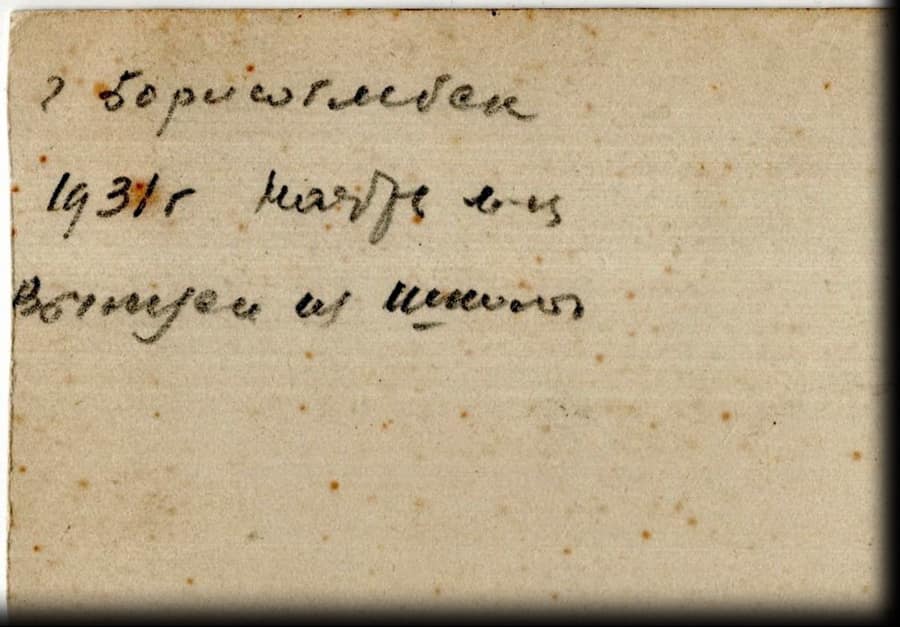 г Борисоглебск
1931 г Ноябрь м-ц
Выпуск из школы